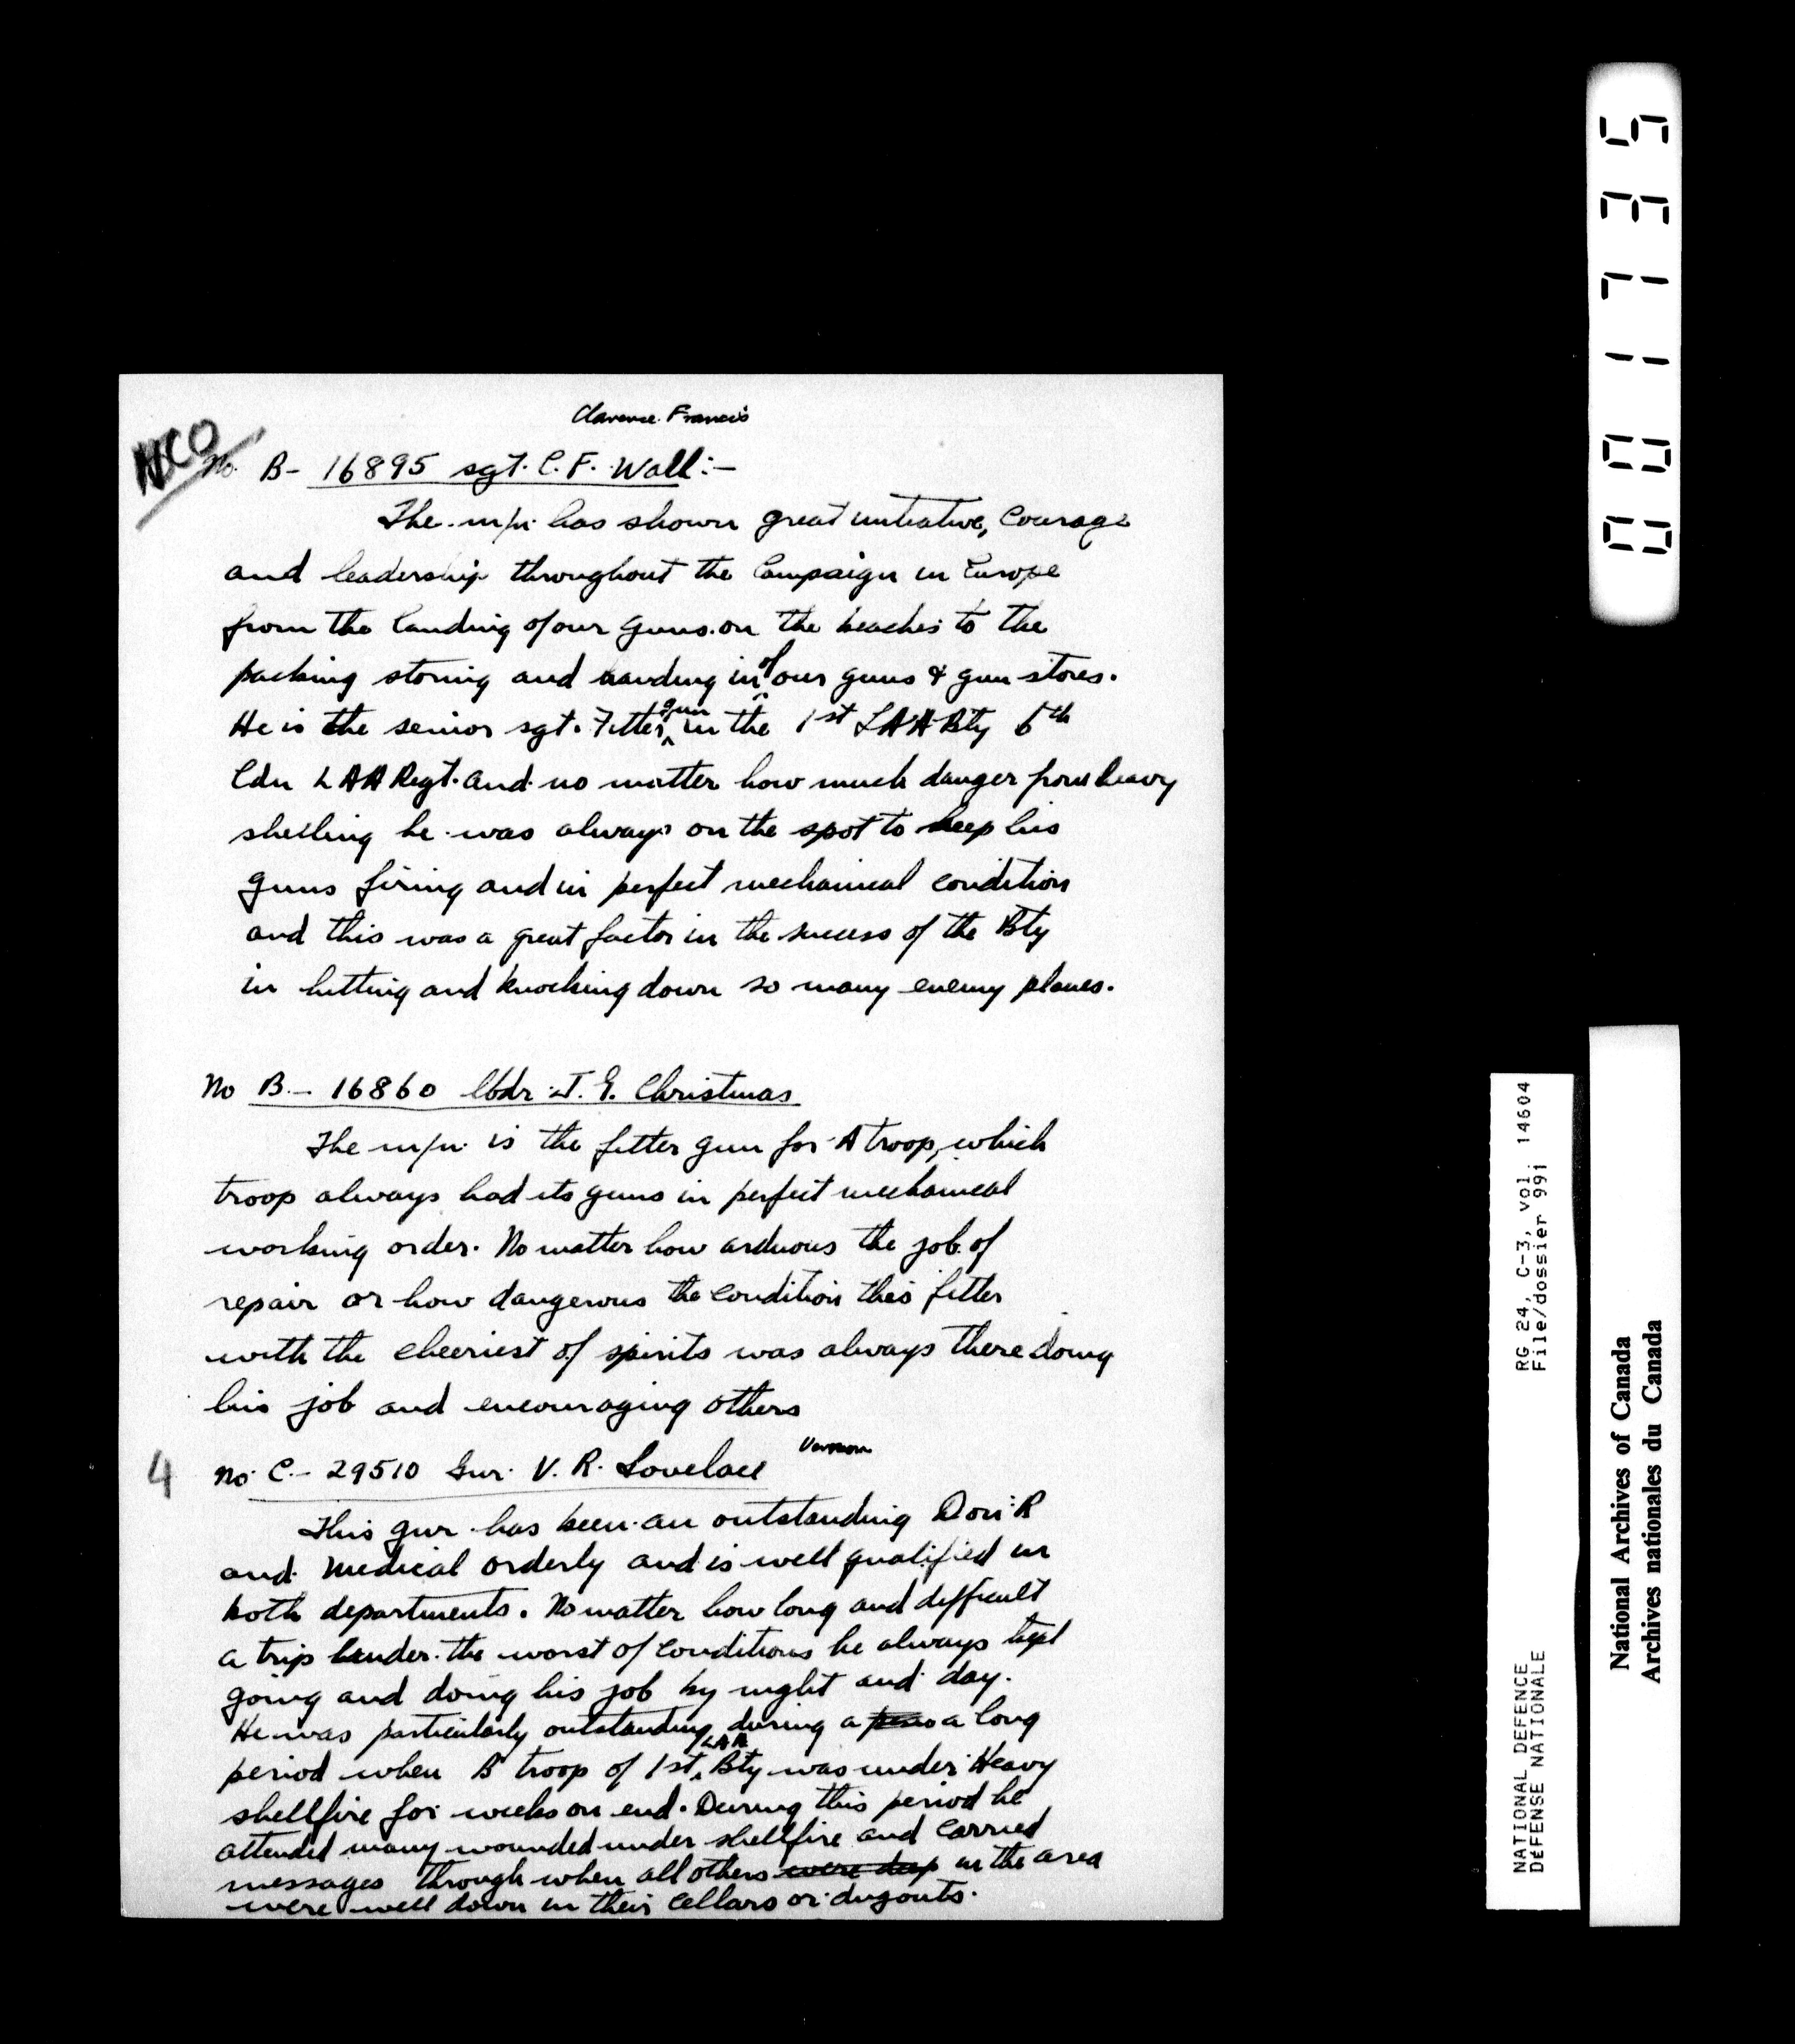 Clarence Francis
NCO
No. B- 16895 sgt. C. F. Wall:-
The m/n has shown great initiative, Courage
and leadership throughout the Campaign in Europe
from the landing of our guns on the beaches to the
packing storing and handing in of our guns & gun stores.
He is the senior sgt. Fitter gun in the 1st LAA Bty 6th
Cdn LAA Regt. and no matter how much danger from heavy
shelling he was always on the spot to keep his
guns firing and in perfect mechanical condition
and this was a great factor in the success of the Bty
in hitting and knocking down so many enemy planes.
No B- 16860 Lbdr J. E. Christmas
The m/n is the fitter gun for A troop, which
troop always had its guns in perfect mechanical
working order. No matter how arduous the job of
repair or how dangerous the condition this fitter
with the cheeriest of spirits was always there doing
his job and encouraging others
Vernon
4 No. C- 29510 Gnr. V. R. Lovelace
This gnr has been an outstanding Don R
and Medical orderly and is well qualified in
both departments. No matter how long and difficult
a trip under the worst of conditions he always kept
going and doing his job by night and day.
He was particularly outstanding during a a long
period when B troop of 1st LAA Bty was under Heavy
shellfire for weeks on end. During this period he
attended many wounded under shellfire and carried
messages through when all others were deep in the area
were well down in their cellars or dugouts.
001735
NATIONAL DEFENCE RG 24, C-3, vol. 14604
DÉFENSE NATIONALE File/dossier 991
National Archives of Canada
Archives nationales du Canada